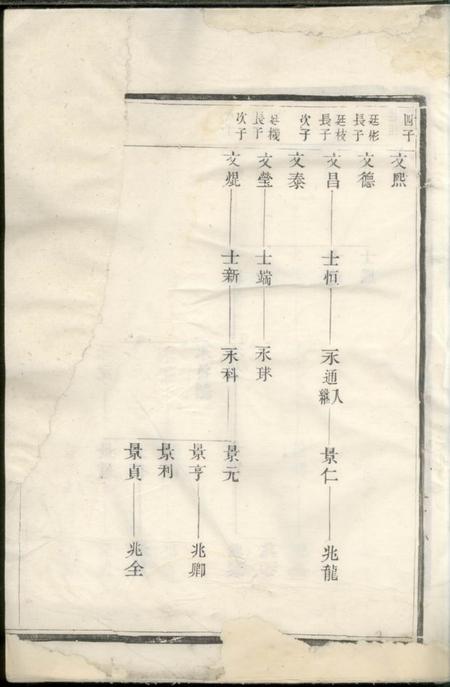 四子
文熙
廷彬
長子
文德
廷枝
長子
文昌
士恒
永通
入繼
景仁
兆龍
次子
文泰
廷機
長子
文瑩
士端
永球
次子
文焜
士新
永科
景元
景亨
兆卿
景利
景貞
兆全